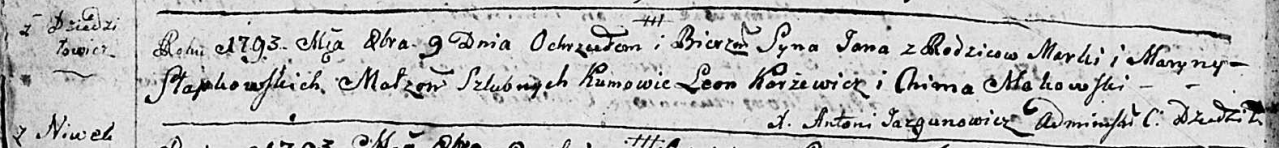 z Dziedzi
łowicz
Roku 1793 Mca 8bra 9 Dnia Ochrzciłem i Bierzm Syna Jana z Rodzicow Marki i Maryny
Słapkowskich Małzon Szlubnych Kumowie Leon Karżewicz i Chima Makowski
X. Antoni Jazgunowicz Administ C. Dziedził.
z Niwek
Roku 1793 Mca 8bra